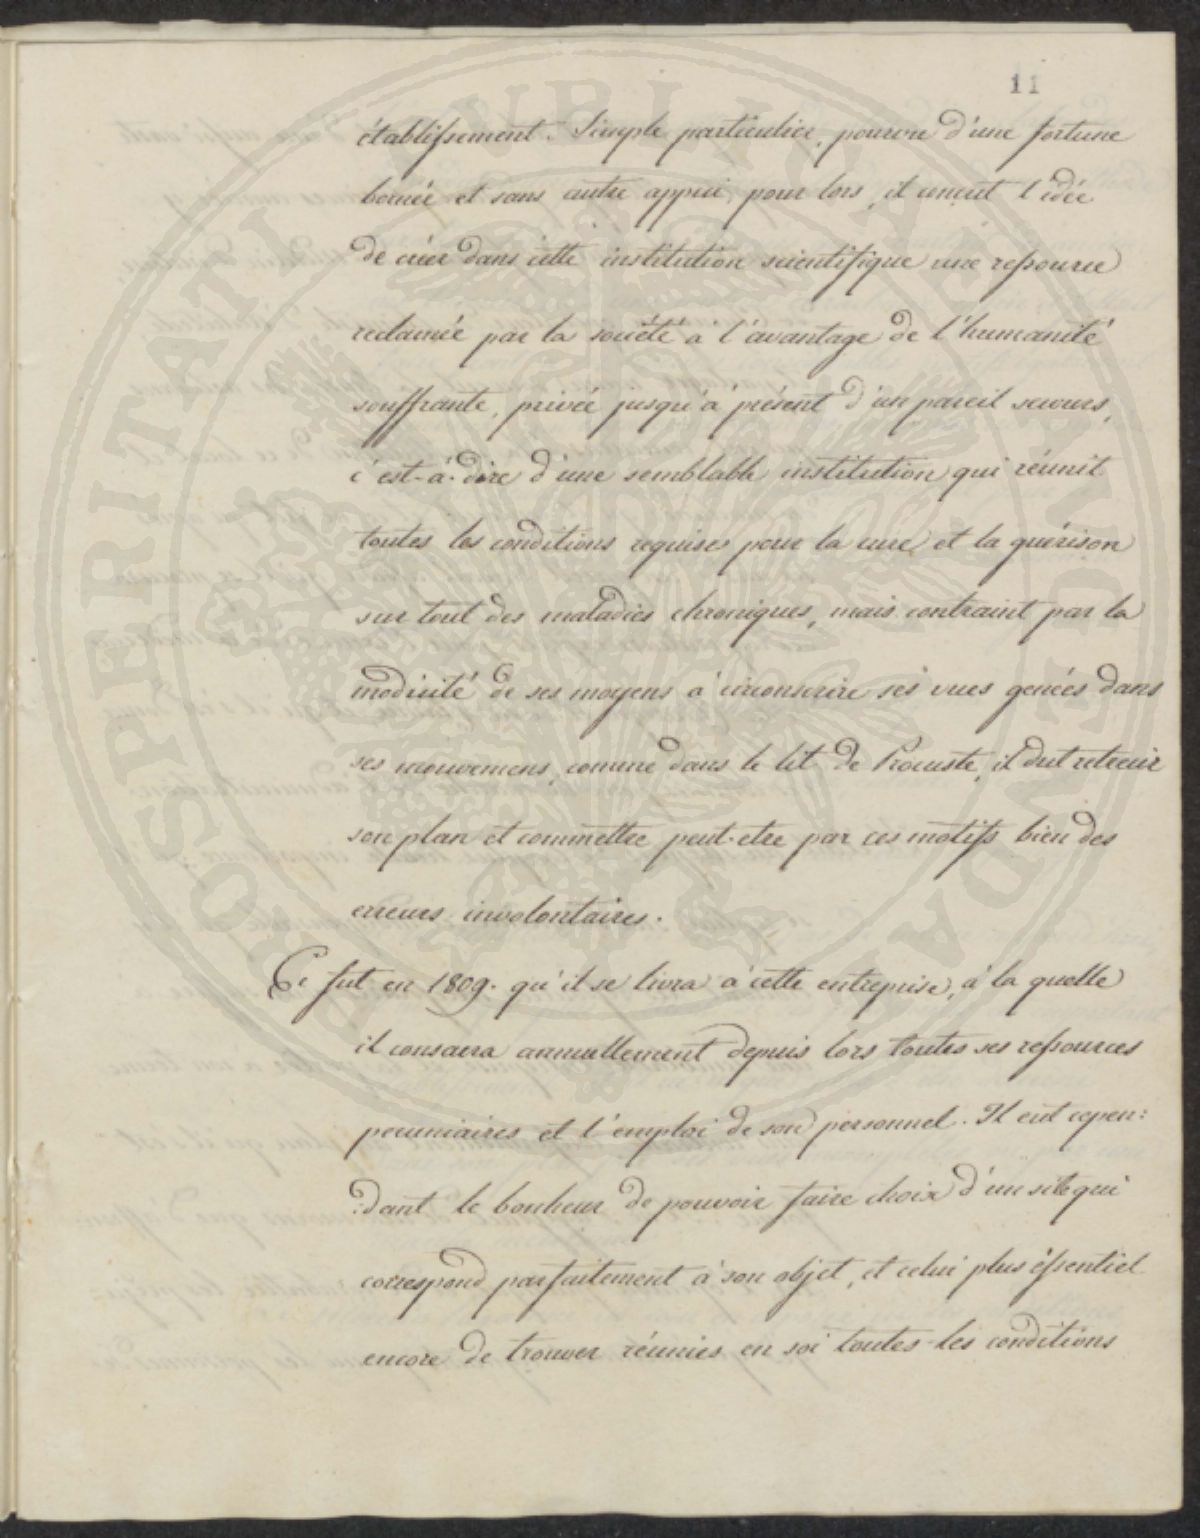 11
établissement. Simple particulier, pourvu d'une fortune
bornée et sans autre appui pour lors, il conçut l'idée
de créer dans cette institution scientifique une ressource
reclamée par la société à l'avantage de l'humanité
souffrante, privée jusqu'à présent d'un pareil secours,
c'est-à-dire d'une semblable institution qui réunit
toutes les conditions requises pour la cure et la guérison
sur tout des maladies chroniques, mais contraint par la
modicité de ses moyens à circonscrire ses vues genées dans
ses mouvemens, comme dans le lit de Procuste, il dut retrecir
son plan et commettre peut-etre par ces motifs bien des
erreurs involontaires.
Ce fut en 1809. qu'il se livra à cette entreprise, à la quelle
il consacra annuellement depuis lors toutes ses ressources
pecuniaires et l'emploi de son personnel. Il eut cepen:
:dant le bonheur de pouvoir faire choix d'un site qui
correspond parfaitement à son objet, et celui plus éssentiel
encore de trouver réunies en soi toutes les conditions
PROSPERITATI PUBLICAE AUGENDAE